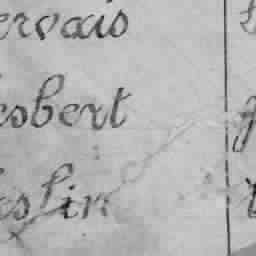 ervais
esbert
eslin